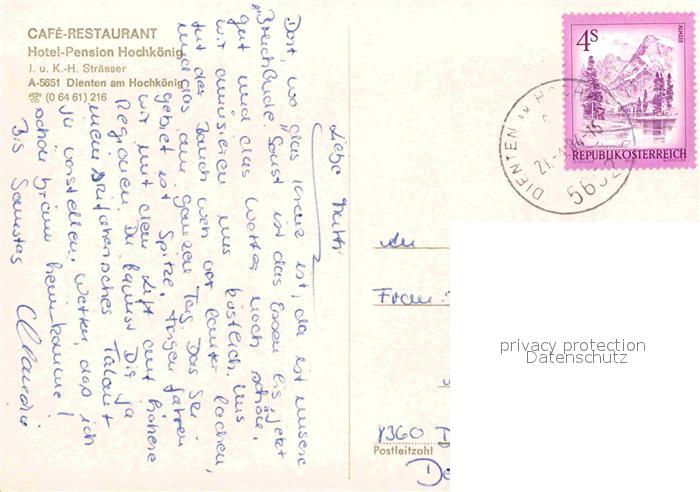 CAFÉ-RESTAURANT
Hotel-Pension Hochkönig
J. u. K.-H. Strässer
A-5651 Dienten am Hochkönig
☎ (0 64 61) 216
Liebe Mutti
Dort, wo "das Kreuz ist, da ist unsere
"Bruchbude. Sonst ist das Essen bis jetzt
gut und das Wetter noch schön.
Wir amüsieren uns köstlich. Uns
tut der Bauch weh vor lauter lachen,
und das am ganzen Tag. Das Ski-
gebiet ist Spitze. Morgen fahren
wir mit dem Lift auf höhere
Regionen. Du kannst Dir ja
mein skifahrerisches Talent
vorstellen. Wetten, daß ich
schön braun heimkomme!
Bis Samstag
Claudia
4S
ALMSEE
REPUBLIK ÖSTERREICH
DIENTEN AM HOCHK
21.
5652
An
Frau
8360 D
Postleitzahl
De
privacy protection
Datenschutz